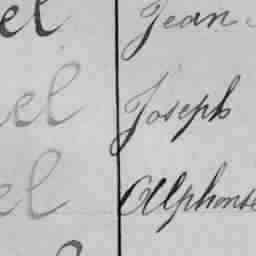 el Jean
el Joseph
el Alphonse